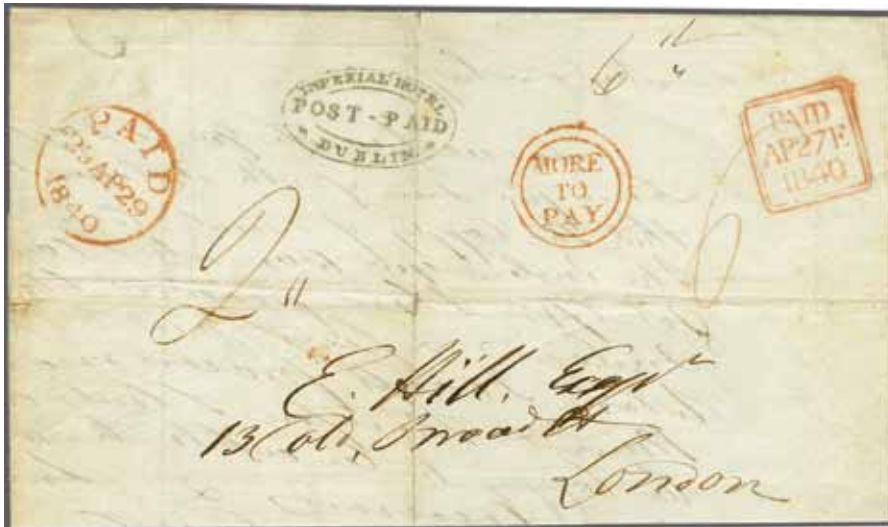 PAID
25 AP 29
1840
IMPERIAL HOTEL
POST-PAID
DUBLIN
MORE
TO
PAY
6
PAID
AP27E
1840
2
6
E. Hill, Esqr
13 Old, Broad St
London